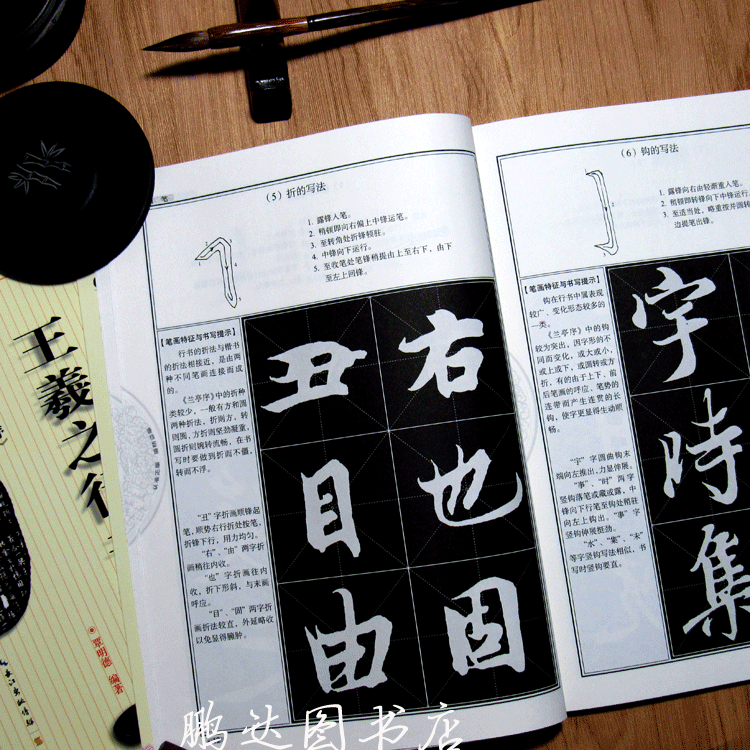 笔
（5）折的写法
1. 露锋入笔。
2. 稍顿即向右偏上中锋运笔。
3. 至转角处折锋轻驻。
4. 中锋向下运行。
5. 至收笔处笔锋稍提由上至右下，由下
至左上回锋。
【笔画特征与书写提示】
行书的折法与楷书
的折法相接近，是由两
种不同笔画连接而成
的。
《兰亭序》中的折种
类较少，一般有方和圆
两种折法，折则方，转
则圆，方折则坚劲凝重，
圆折则婉转流畅，在书
写时要做到折而不僵，
转而不浮。
“丑”字折画顺锋起
笔，顺势右行折处按笔，
折锋下行，用力均匀。
“右”、“由”两字折
画稍往内收。
“也”字折画往内
收，折下形斜，与末画
呼应。
“目”、“固”两字折
画折法较直，外延略收
以免显得臃肿。
丑 右
目 也
由 固
（6）钩的写法
1. 露锋向右由轻渐重入笔。
2. 稍顿即转锋向下中锋运行。
3. 至适当处，略重按并圆转
边提笔出锋。
【笔画特征与书写提示】
钩在行书中属表现
较广、变化形态较多的
一类。
《兰亭序》中的钩
较为突出，因字形的不
同而变化，或大或小，
或上或下，或圆转或方
折，有的由于上下、前
后笔画的呼应、笔势的
连带而产生连贯的长
钩，使字更显得生动顺
畅。
“宇”字圆曲钩末
端向左推出，力量伸展。
“事”、“时”两字
竖钩落笔或藏或露，中
锋向下行笔至钩处稍驻
向左上钩出。“事”字
竖钩伸展挺劲。
“水”、“集”、“未”
等字竖钩写法相似，书
写时竖钩要直。
宇
時
集
王羲之行
覃明德 编著
长江出版传媒
鹏达图书店